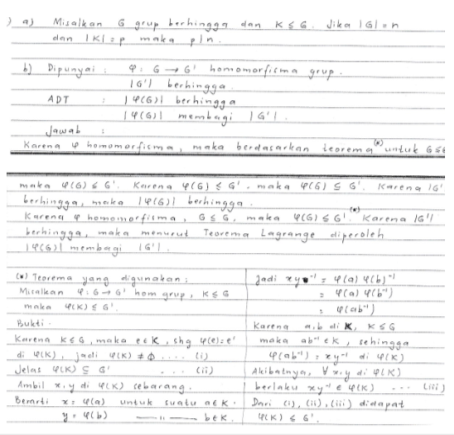 ) a) Misalkan G grup berhingga dan K ≤ G. Jika |G| = n
dan |K| = p maka p|n.
b) Dipunyai : φ : G → G' homomorfisma grup.
|G'| berhingga.
ADT : |φ(G)| berhingga
|φ(G)| membagi |G'|.
Jawab :
Karena φ homomorfisma, maka berdasarkan teorema (*) untuk G ≤ G
maka φ(G) ≤ G'. Karena φ(G) ≤ G', maka φ(G) ⊆ G'. Karena |G'
berhingga, maka |φ(G)| berhingga.
Karena φ homomorfisma, G ≤ G, maka φ(G) ≤ G' (*). Karena |G'|
berhingga, maka menurut Teorema Lagrange diperoleh
|φ(G)| membagi |G'|.
(*) Teorema yang digunakan :
Misalkan φ : G → G' hom grup, K ≤ G
maka φ(K) ≤ G'.
Bukti :
Karena K ≤ G, maka e ∈ K, shg φ(e) = e'
di φ(K), jadi φ(K) ≠ ∅ .... (i)
Jelas φ(K) ⊆ G' ... (ii)
Ambil x, y di φ(K) sebarang.
Berarti x = φ(a) untuk suatu a ∈ K.
y = φ(b) —— " —— b ∈ K.
Jadi xy⁻¹ = φ(a) φ(b)⁻¹
= φ(a) φ(b⁻¹)
= φ(ab⁻¹)
Karena a, b di K, K ≤ G
maka ab⁻¹ ∈ K, sehingga
φ(ab⁻¹) = xy⁻¹ di φ(K)
Akibatnya, ∀ x, y di φ(K)
berlaku xy⁻¹ ∈ φ(K) ... (iii)
Dari (i), (ii), (iii) didapat
φ(K) ≤ G'.